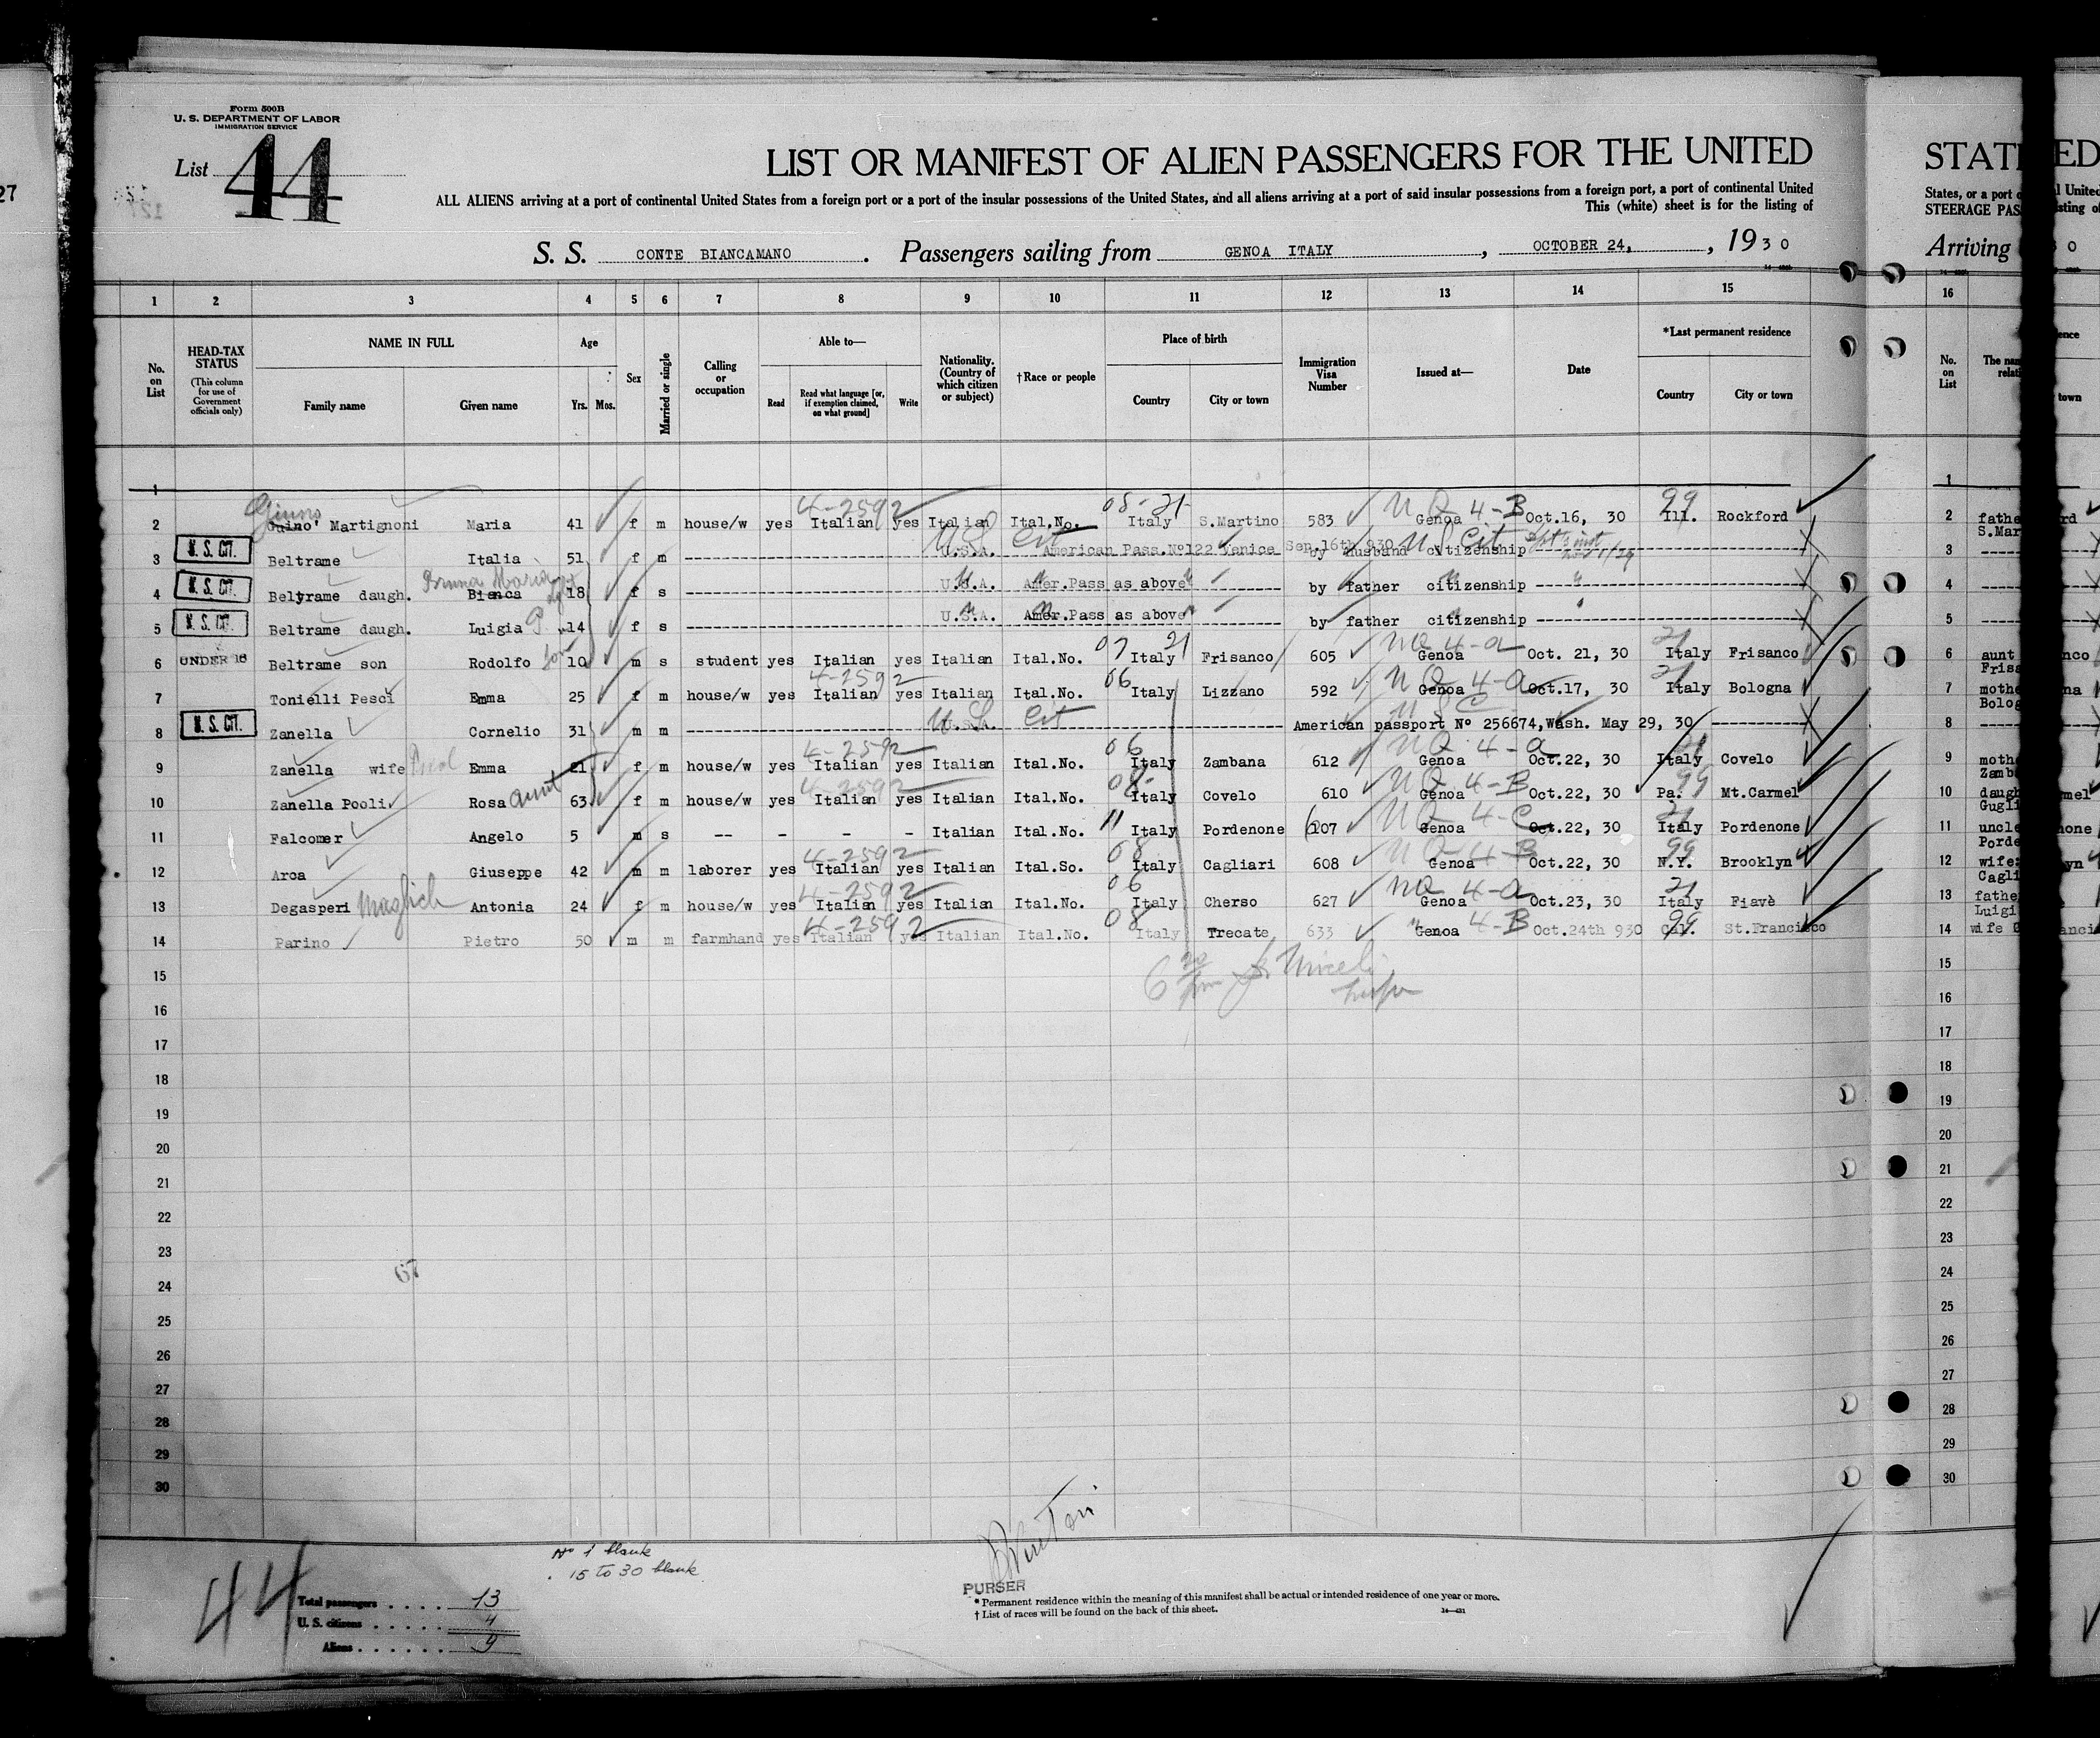 Form 500B
U. S. DEPARTMENT OF LABOR
IMMIGRATION SERVICE
List 44
27
LIST OR MANIFEST OF ALIEN PASSENGERS FOR THE UNITED
ALL ALIENS arriving at a port of continental United States from a foreign port or a port of the insular possessions of the United States, and all aliens arriving at a port of said insular possessions from a foreign port, a port of continental United
This (white) sheet is for the listing of
S. S. CONTE BIANCAMANO . Passengers sailing from GENOA ITALY , OCTOBER 24, , 1930
1 2 3 4 5 6 7 8 9 10 11 12 13 14 15
No. on List
HEAD-TAX STATUS
(This column for use of Government officials only)
NAME IN FULL
Family name Given name
Age
Yrs. Mos.
Sex
Married or single
Calling or occupation
Able to—
Read Read what language [or, if exemption claimed, on what ground] Write
Nationality. (Country of which citizen or subject)
†Race or people
Place of birth
Country City or town
Immigration Visa Number
Issued at—
Date
*Last permanent residence
Country City or town
1
2 Guino' Martignoni Maria 41 f m house/w yes Italian yes Italian Ital.No. Italy S.Martino 583 Genoa Oct.16, 30 Ill. Rockford
Giuno 4-2592 08-21 NQ 4-B 99
3 U. S. CIT. Beltrame Italia 51 f m U.S.A. American Pass.Nº122 Venice Sep.16th 930 by husband citizenship
US Cit US Cit
4 U. S. CIT. Beltrame daugh. Bianca 18 f s U.S.A. Amer.Pass as above by father citizenship
Bruna Maria
5 U. S. CIT. Beltrame daugh. Luigia 14 f s U.S.A. Amer.Pass as above by father citizenship
6 UNDER 16 Beltrame son Rodolfo 10 m s student yes Italian yes Italian Ital.No. Italy Frisanco 605 Genoa Oct. 21, 30 Italy Frisanco
07 21 NQ 4-a 21
7 Tonielli Pesci Emma 25 f m house/w yes Italian yes Italian Ital.No. Italy Lizzano 592 Genoa Oct.17, 30 Italy Bologna
4-2592 06 NQ 4-a 21
8 U. S. CIT. Zanella Cornelio 31 m m U.S.A. American passport Nº 256674,Wash. May 29, 30
US Cit USC
9 Zanella wife Emma 21 f m house/w yes Italian yes Italian Ital.No. Italy Zambana 612 Genoa Oct.22, 30 Italy Covelo
4-2592 06 NQ 4-a 21
10 Zanella Pooli Rosa 63 f m house/w yes Italian yes Italian Ital.No. Italy Covelo 610 Genoa Oct.22, 30 Pa. Mt.Carmel
aunt 4-2592 08 NQ 4-B 99
11 Falcomer Angelo 5 m s -- - - - Italian Ital.No. Italy Pordenone 107 Genoa Oct.22, 30 Italy Pordenone
11 NQ 4-C 21
12 Arca Giuseppe 42 m m laborer yes Italian yes Italian Ital.So. Italy Cagliari 608 Genoa Oct.22, 30 N.Y. Brooklyn
4-2592 08 NQ 4-B 99
13 Degasperi Antonia 24 f m house/w yes Italian yes Italian Ital.No. Italy Cherso 627 Genoa Oct.23, 30 Italy Fiavè
Maglich 4-2592 06 NQ 4-a 21
14 Parino Pietro 50 m m farmhand yes Italian yes Italian Ital.No. Italy Trecate 633 Genoa Oct.24th 930 Cal. St.Francisco
4-2592 08 4-B 99
15
16
17
18
19
20
21
22
23
24
25
26
27
28
29
30
67
Nº 1 blank
15 to 30 blank
44
Total passengers . . . . 13
U. S. citizens . . . . . 4
Aliens . . . . . . 9
PURSER
* Permanent residence within the meaning of this manifest shall be actual or intended residence of one year or more.
† List of races will be found on the back of this sheet.
STAT
States, or a port
STEERAGE PAS
Arriving
16
No. on List
The nam
relati
1
2 fathe
S.Mar
3
4
5
6 aunt
Frisa
7 mothe
Bolog
8
9 moth
Zamb
10 daug
Gugli
11 uncle
Porde
12 wife:
Cagli
13 fathe
Luigi
14 wife
15
16
17
18
19
20
21
22
23
24
25
26
27
28
29
30
ED